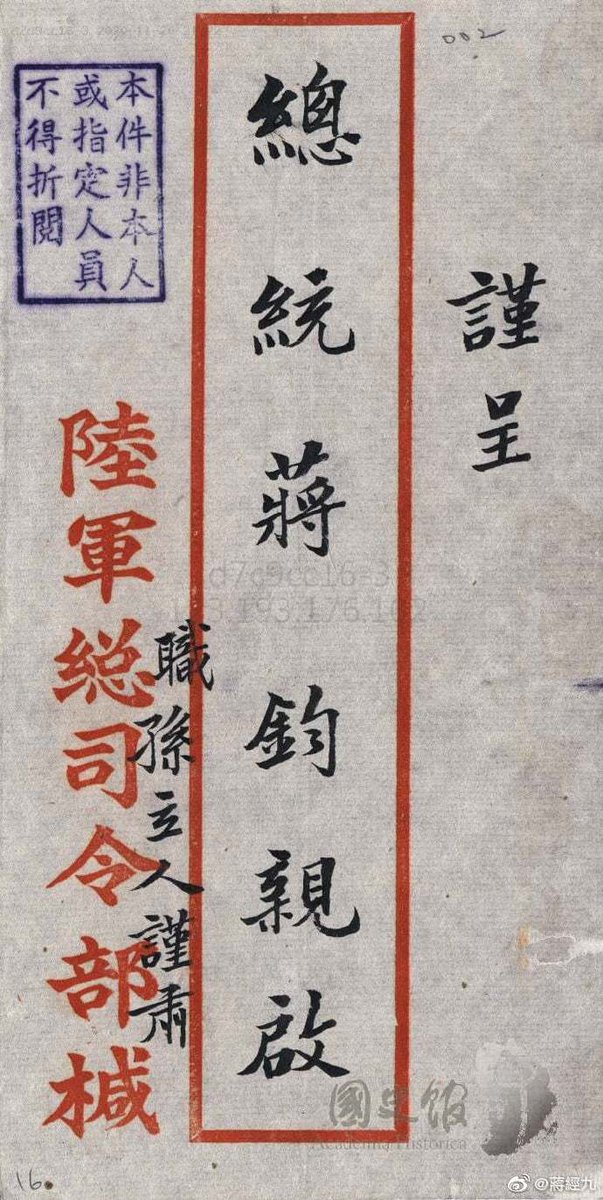 002
謹呈
總統蔣鈞親啟
職孫立人謹肅
陸軍総司令部椷
本件非本人
或指定人員
不得折閱
國史館
Academia Historica
16
@蔣經九